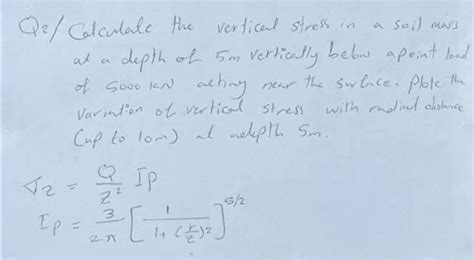 Q2/ Calculate the vertical stress in a soil mass
at a depth of 5m vertically below a point load
of 5000 kN acting near the surface. Plote the
variation of vertical stress with radial distance
(up to 10m) at adepth 5m.
σz = Q/z² Ip
Ip = 3/2π [ 1 / 1+(r/z)² ]^5/2